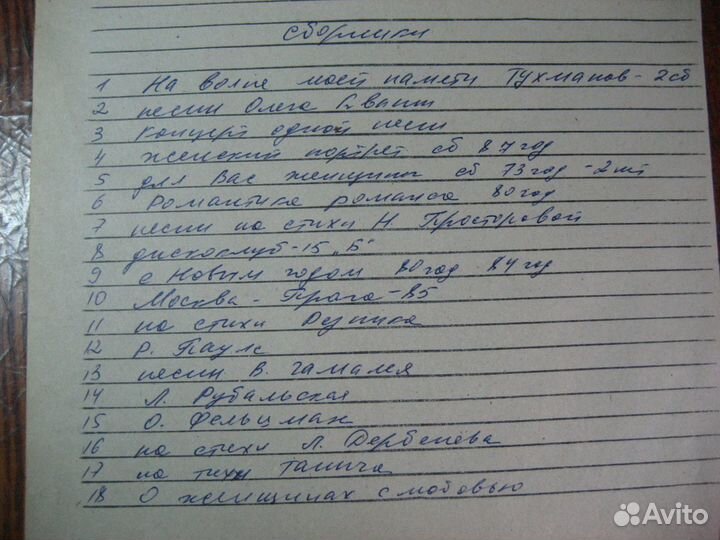 сборники
1 На волне моей памяти Тухманов - 2сб
2 песни Олега Иванн
3 концерт одной песни
4 женский портрет сб 87 год
5 для Вас женщины сб 73 год - 2шт
6 Романтика романса 80 год
7 песни на стихи Н Просторовой
8 дискоклуб-15 „Б"
9 с Новым годом 80 год 84 год
10 Москва - Прага - 85
11 на стихи Резника
12 Р. Паулс
13 песни В. Гамалея
14 Л. Рубальская
15 О. Фельцман
16 на стихи Л. Дербенева
17 на тихи Танича
18 О женщинах с любовью
Avito